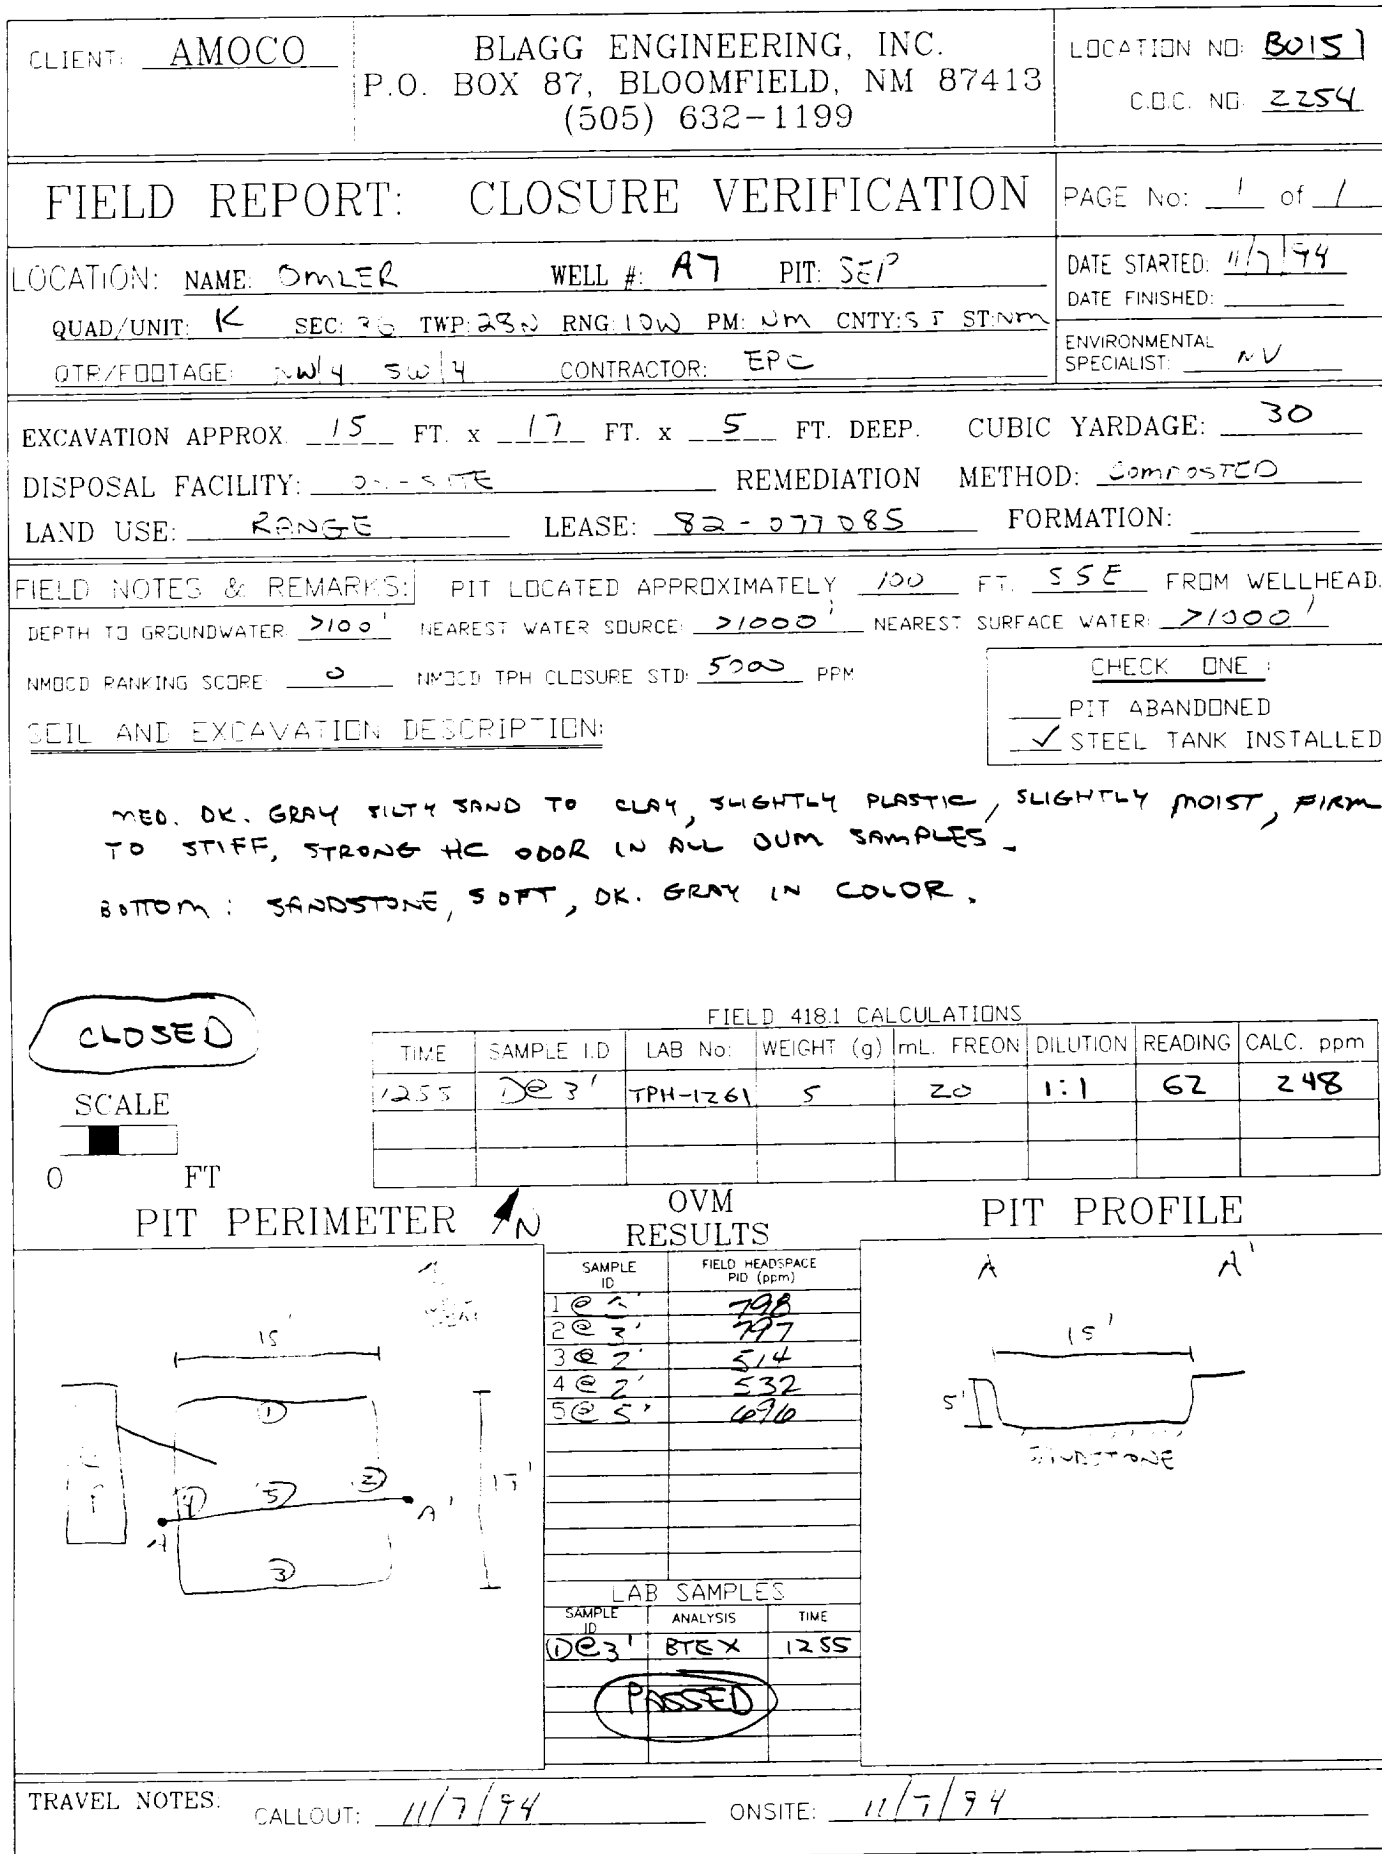 CLIENT: AMOCO
BLAGG ENGINEERING, INC.
P.O. BOX 87, BLOOMFIELD, NM 87413
(505) 632-1199
LOCATION NO: B0157
C.O.C. NO: 2254
FIELD REPORT: CLOSURE VERIFICATION
PAGE No: 1 of 1
LOCATION: NAME: OMLER WELL #: A7 PIT: SEP
QUAD/UNIT: K SEC: TWP: 28N RNG: 10W PM: NM CNTY: SJ ST: NM
QTR/FOOTAGE: NW/4 SW/4 CONTRACTOR: EPC
DATE STARTED: 11/7/94
DATE FINISHED:
ENVIRONMENTAL
SPECIALIST: NV
EXCAVATION APPROX. 15 FT. x 17 FT. x 5 FT. DEEP. CUBIC YARDAGE: 30
DISPOSAL FACILITY: ON-SITE REMEDIATION METHOD: COMPOSTED
LAND USE: RANGE LEASE: 82-077085 FORMATION:
FIELD NOTES & REMARKS: PIT LOCATED APPROXIMATELY 100 FT. SSE FROM WELLHEAD.
DEPTH TO GROUNDWATER: >100' NEAREST WATER SOURCE: >1000' NEAREST SURFACE WATER: >1000'
NMOCD RANKING SCORE: 0 NMOCD TPH CLOSURE STD: 5000 PPM
CHECK ONE :
PIT ABANDONED
✓ STEEL TANK INSTALLED
SOIL AND EXCAVATION DESCRIPTION:
MED. DK. GRAY SILTY SAND TO CLAY, SLIGHTLY PLASTIC, SLIGHTLY MOIST, FIRM
TO STIFF, STRONG HC ODOR IN ALL OVM SAMPLES.
BOTTOM: SANDSTONE, SOFT, DK. GRAY IN COLOR.
CLOSED
SCALE
0 FT
FIELD 418.1 CALCULATIONS
TIME SAMPLE I.D LAB No: WEIGHT (g) mL. FREON DILUTION READING CALC. ppm
1255 D@3' TPH-1261 5 20 1:1 62 248
PIT PERIMETER N
15'
1
4 5 2
A A'
3
17'
OVM
RESULTS
SAMPLE ID FIELD HEADSPACE PID (ppm)
1 @ 798
2 @ 3' 797
3 @ 2' 514
4 @ 2' 532
5 @ 5' 696
LAB SAMPLES
SAMPLE ID ANALYSIS TIME
D@3' BTEX 1255
PASSED
PIT PROFILE
A A'
15'
5'
SANDSTONE
TRAVEL NOTES: CALLOUT: 11/7/94 ONSITE: 11/7/94